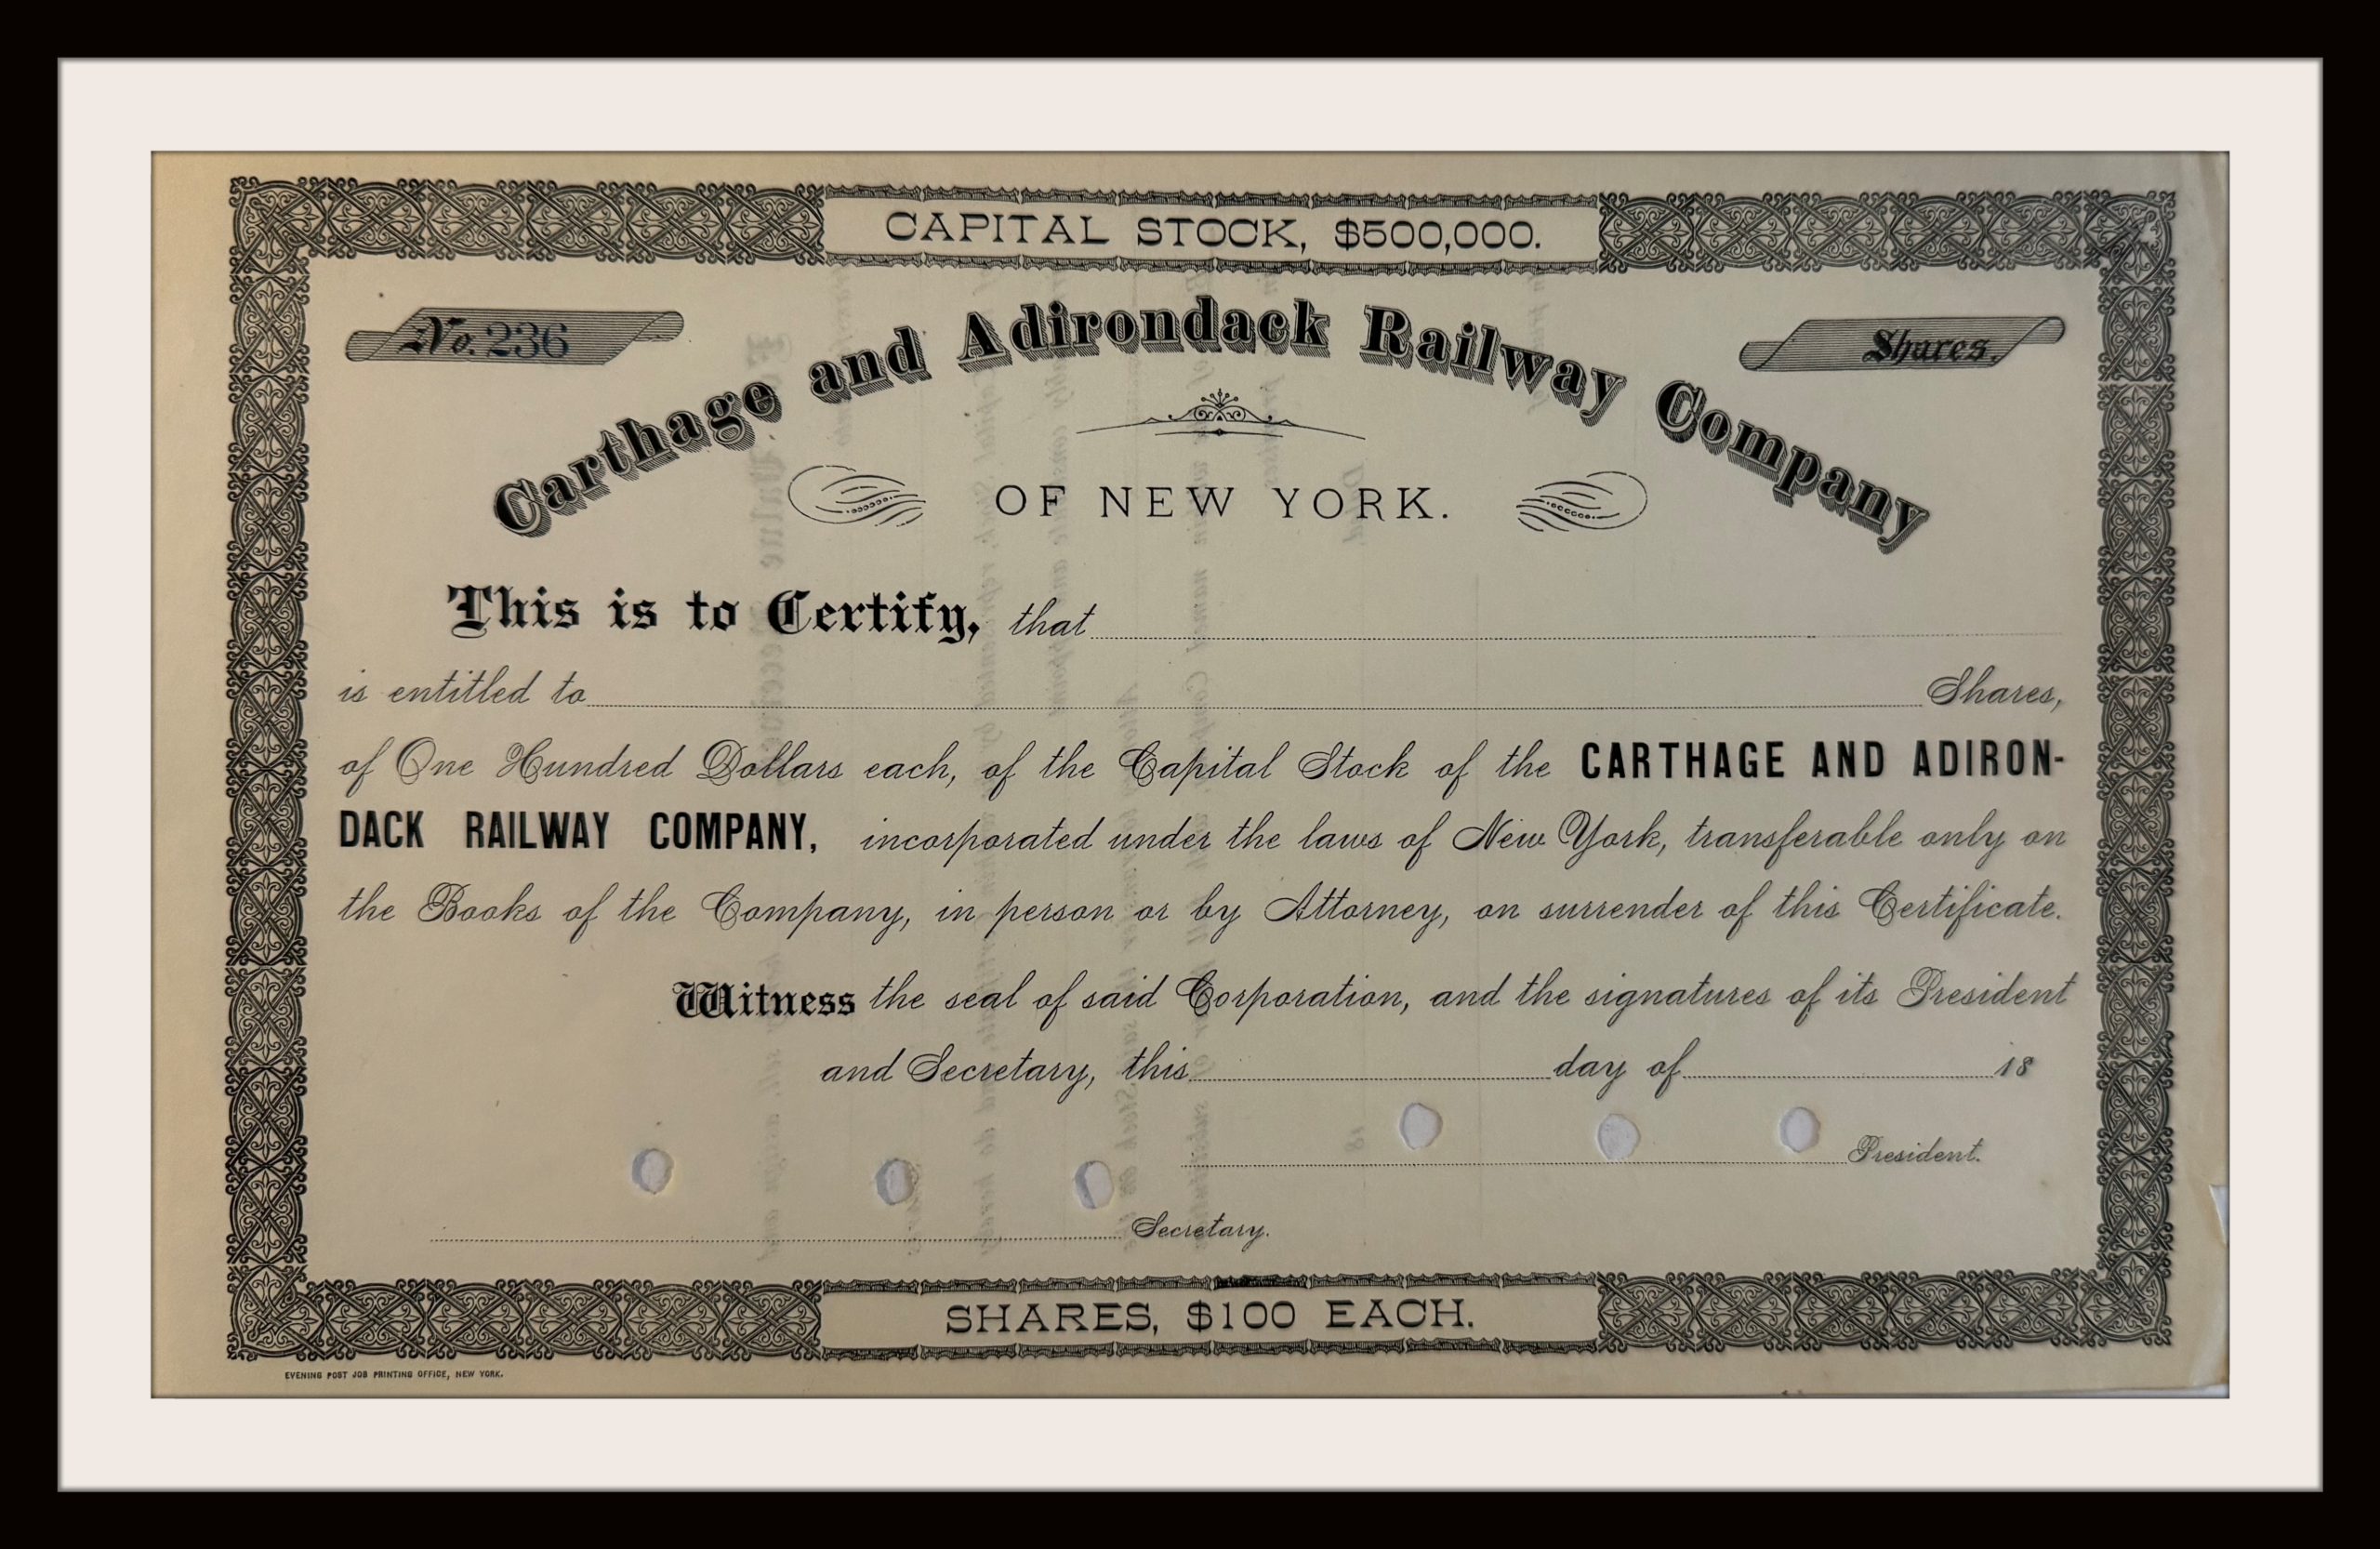 CAPITAL STOCK, $500,000.
No. 236
Shares.
Carthage and Adirondack Railway Company
OF NEW YORK.
This is to Certify, that
is entitled to Shares,
of One Hundred Dollars each, of the Capital Stock of the CARTHAGE AND ADIRON-
DACK RAILWAY COMPANY, incorporated under the laws of New York, transferable only on
the Books of the Company, in person or by Attorney, on surrender of this Certificate.
Witness the seal of said Corporation, and the signatures of its President
and Secretary, this day of 18
President.
Secretary.
SHARES, $100 EACH.
EVENING POST JOB PRINTING OFFICE, NEW YORK.